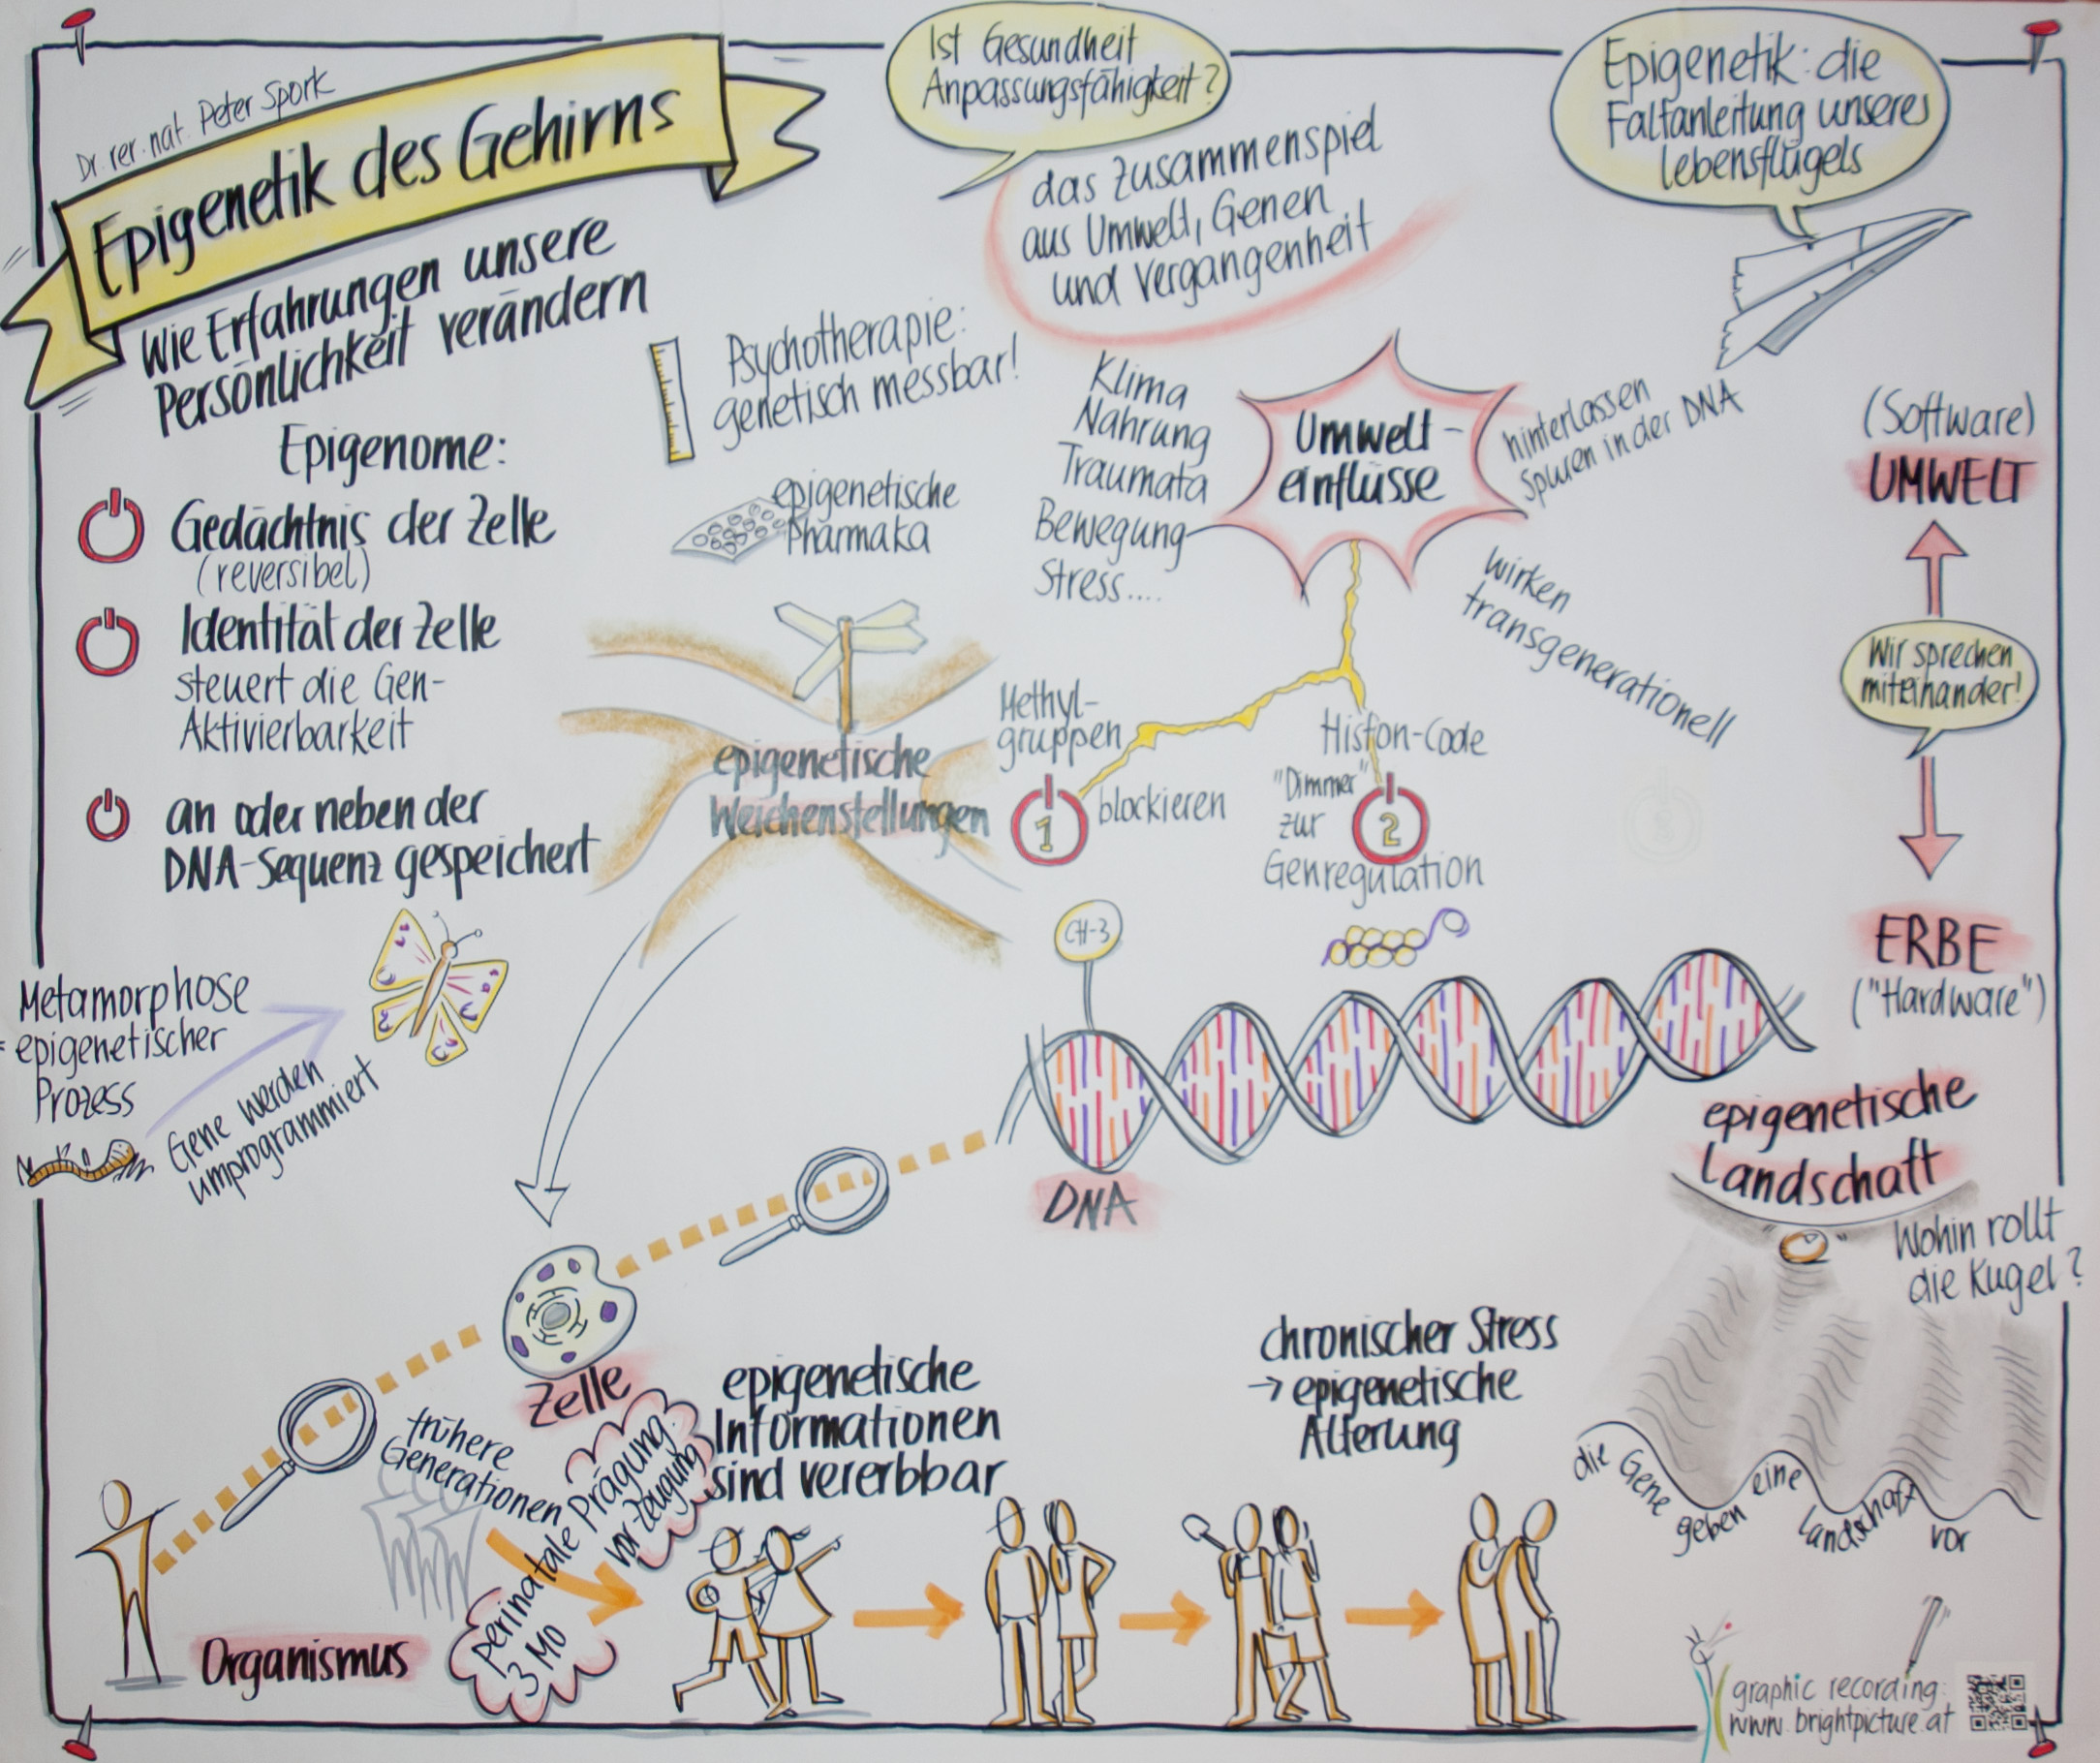 Dr. rer. nat. Peter Spork
Epigenetik des Gehirns
Wie Erfahrungen unsere
Persönlichkeit verändern
Ist Gesundheit
Anpassungsfähigkeit?
das Zusammenspiel
aus Umwelt, Genen
und Vergangenheit
Epigenetik: die
Faltanleitung unseres
Lebensflügels
Epigenome:
Gedächtnis der Zelle
(reversibel)
Identität der Zelle
steuert die Gen-
Aktivierbarkeit
an oder neben der
DNA-Sequenz gespeichert
Psychotherapie:
genetisch messbar!
epigenetische
Pharmaka
epigenetische
Weichenstellungen
Klima
Nahrung
Traumata
Bewegung
Stress....
Umwelt-
einflüsse
hinterlassen
Spuren in der DNA
wirken
transgenerationell
Methyl-
gruppen
1
blockieren
Histon-Code
"Dimmer"
zur
2
Genregulation
(Software)
UMWELT
Wir sprechen
miteinander!
ERBE
("Hardware")
CH-3
DNA
Metamorphose
= epigenetischer
Prozess
Gene werden
umprogrammiert
Zelle
Organismus
frühere
Generationen
perinatale Prägung
3 Mo
vor Zeugung
epigenetische
Informationen
sind vererbbar
chronischer Stress
→ epigenetische
Alterung
epigenetische
Landschaft
Wohin rollt
die Kugel?
die Gene geben eine Landschaft vor
graphic recording:
www.brightpicture.at